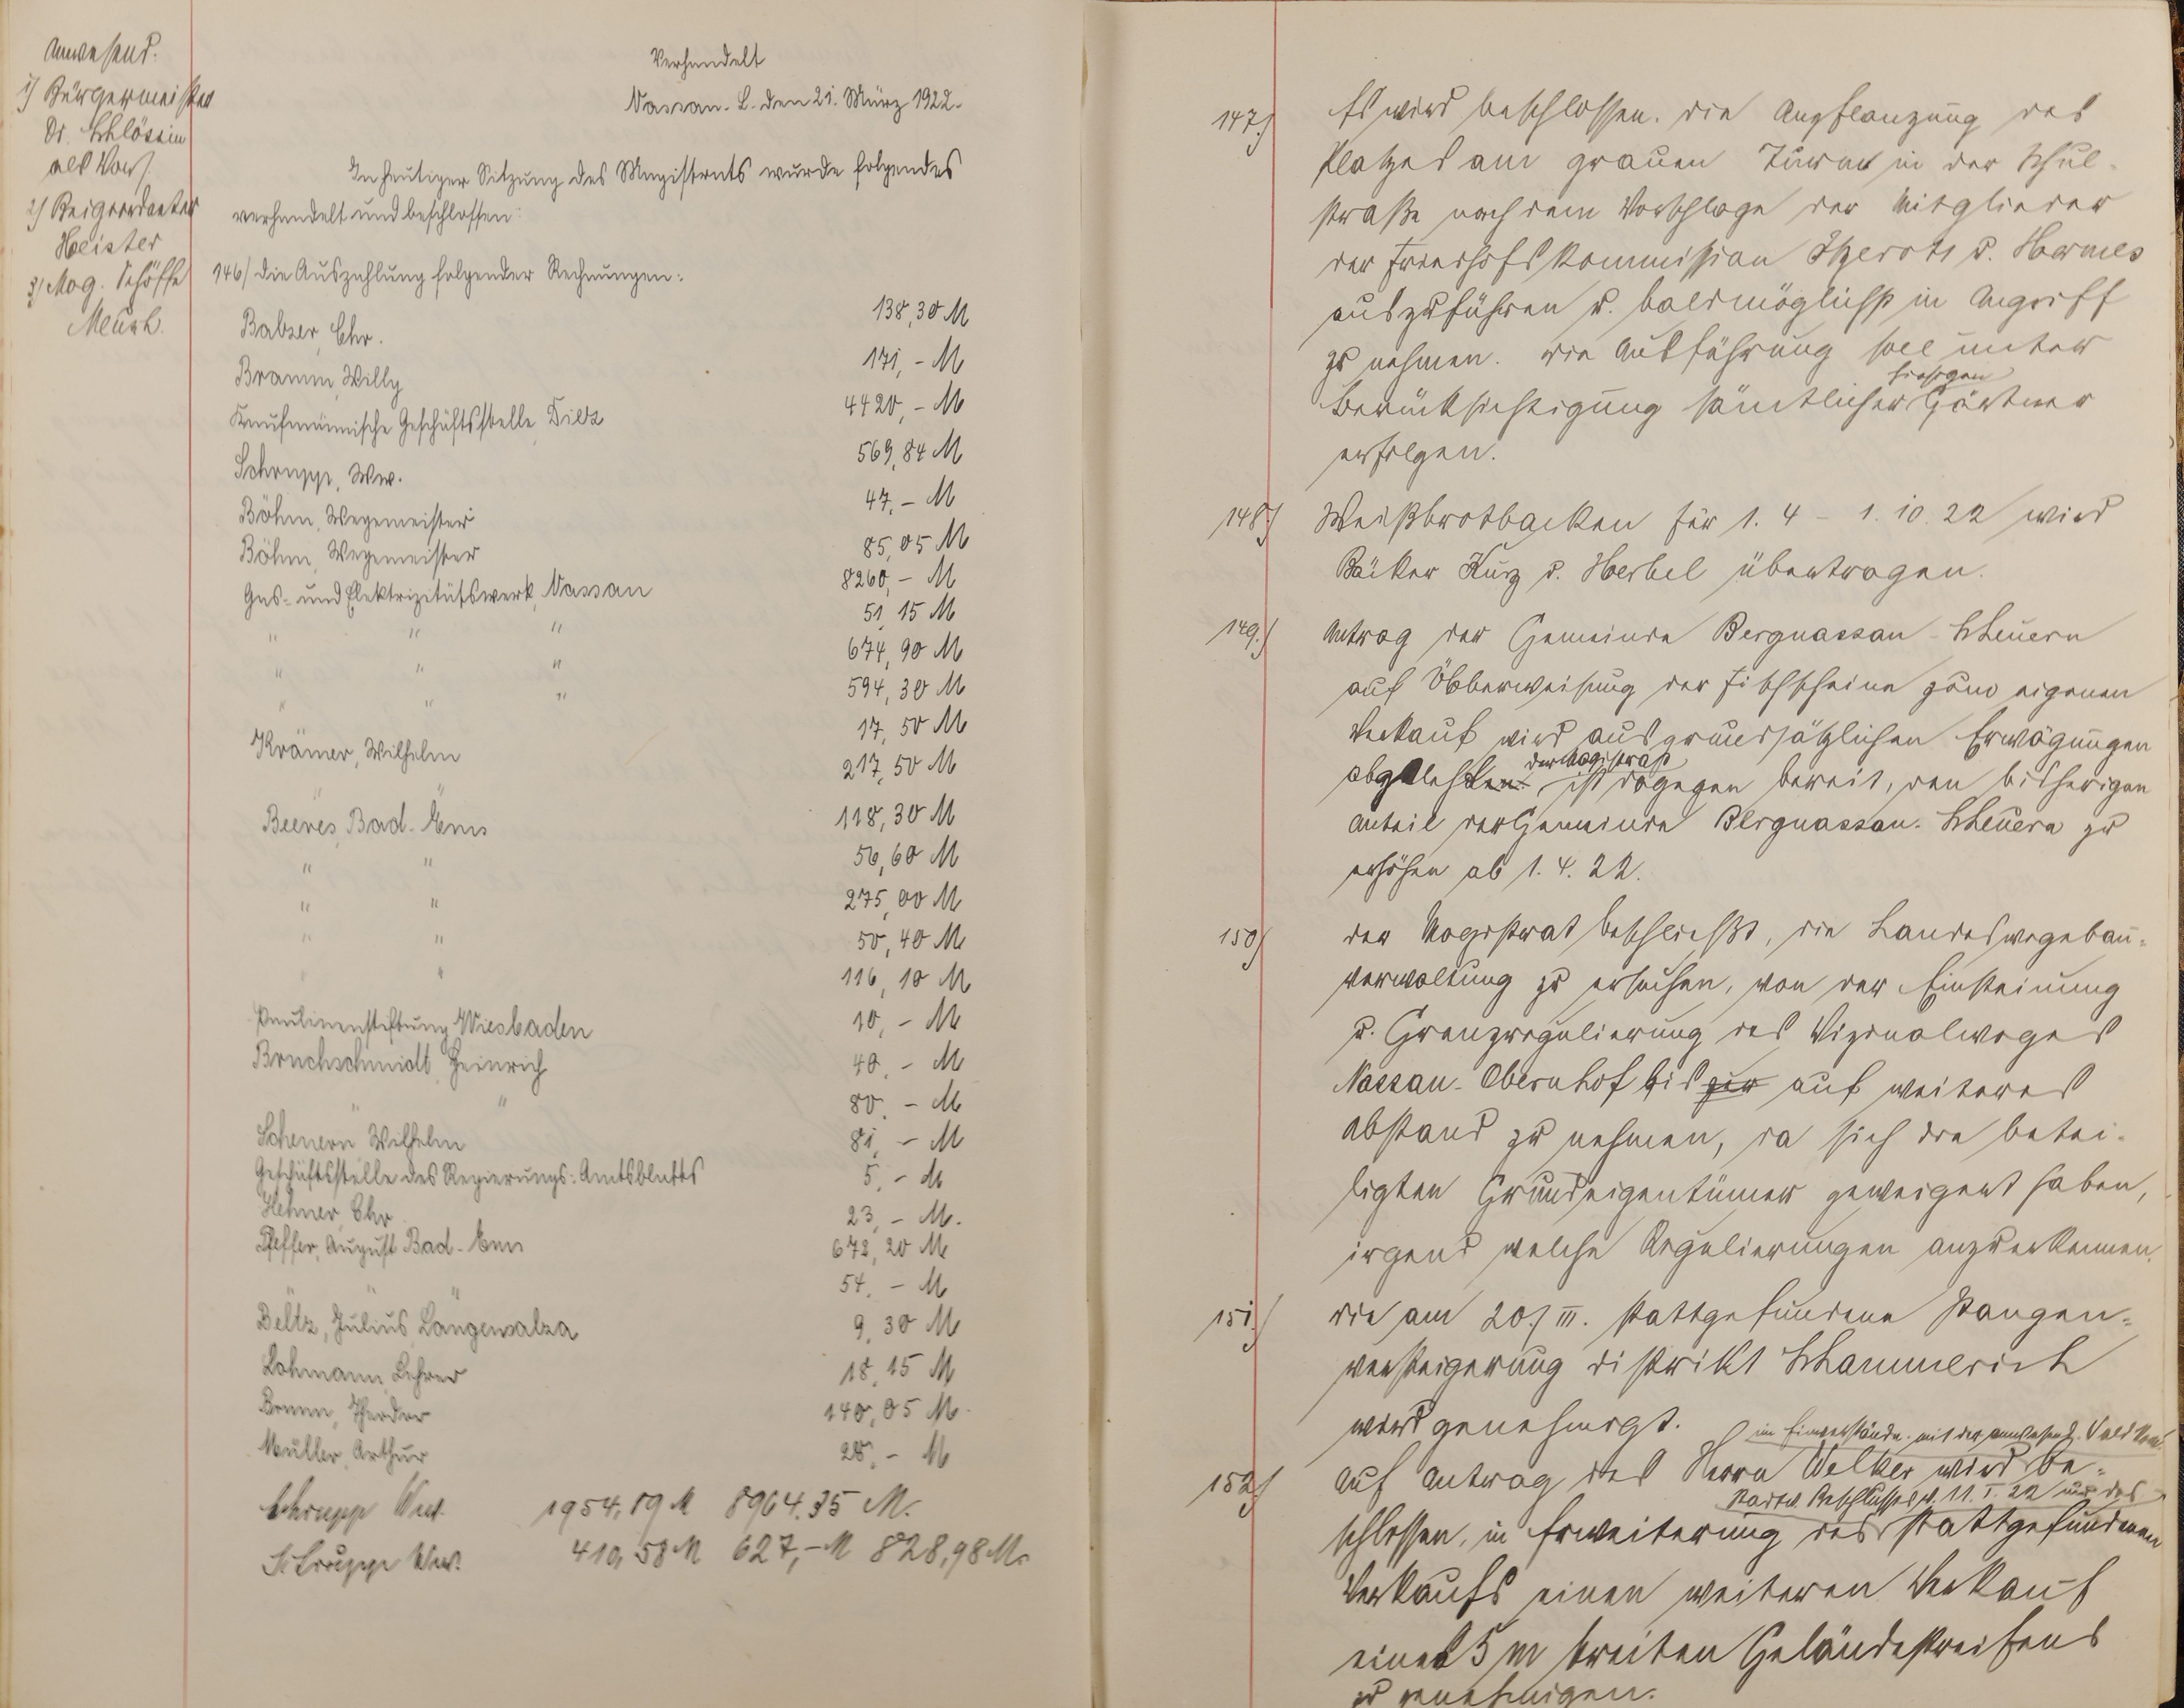 Anwesend:
1) Bürgermeister
Dr. Schlösin
als Vors.
2) Beigeordneter
Heister
3) Mag. Schöffe
Meusch.
Verhandelt
Nassau-L. den 21. März 1922.
In heutiger Sitzung des Magistrats wurde folgendes
verhandelt und beschlossen:
146/ die Auszahlung folgender Rechnungen:
Babser, Chr. 138,30 M
Bramm, Willy 171,- M
Kaufmännische Geschäftsstelle, Diez 4420,- M
Schrupp, Ww. 569,84 M
Böhm, Wegemeister 47,- M
Böhm, Wegemeister 85,05 M
Gas- und Elektrizitätswerk, Nassau 8260,- M
" " " 51,15 M
" " " 674,90 M
" " " 594,30 M
Krämer, Wilhelm 17,50 M
" 217,50 M
Beeres, Bad-Ems 118,30 M
" " 56,60 M
" " 275,00 M
" " 50,40 M
" " 116,10 M
Paulinenstiftung Wiesbaden 10,- M
Bruchschmidt, Heinrich 40,- M
" " 80,- M
Scheuern Wilhelm 81,- M
Geschäftsstelle des Regierungs-Amtsblatts 5,- M
Hehner, Chr. 23,- M.
Pfeffer, August Bad-Ems 672,20 M
" " 54,- M
Beltz, Julius, Langensalza 9,30 M
Lohmann, Lehrer 18,15 M
Bramm, Theodor 140,05 M
Müller, Arthur 28,- M
Schrupp Ww. 1954,89 M 8964.35 M.
Schrupp Ww. 410,58 M 627,- M 828,98 M.
147.) Es wird beschlossen, die Anpflanzung des
Platzes am grauen Turm in der Schul-
straße nach dem Vorschlage der Mitglieder
der Friedhofskommission u. Hermes
auszuführen u. baldmöglichst in Angriff
zu nehmen. Die Ausführung soll unter
hiesigen
Berücksichtigung sämtlicher Gärtner
erfolgen.
148.) Weißbrotbacken für 1. 4 - 1. 10. 22 wird
Bäcker Kurz u. Herbel übertragen.
149.) Antrag der Gemeinde Bergnassau-Scheuern
auf Überweisung der Fischscheine zum eigenen
Verkauf wird aus grundsätzlichen Erwägungen
der Magistrat
abgelehnt. ist dagegen bereit, den bisherigen
Anteil der Gemeinde Bergnassau-Scheuern zu
erhöhen ab 1. 4. 22.
150) Der Magistrat beschließt, die Landeswegebau-
verwaltung zu ersuchen, von der Einsteinung
u. Grenzregulierung des Vizinalweges
Nassau-Obernhof bis zur auf weiteres
Abstand zu nehmen, da sich die betei-
ligten Grundeigentümer geweigert haben,
irgend welche Regulierungen anzuerkennen.
151.) Die am 20./III. stattgefundene Stangen-
versteigerung Distrikt Schammerich
wird genehmigt.
im Einverständn. mit der anwesend. Waldkom.
152.) Auf Antrag des Herrn Welker wird be-
Beschlusses v. 11. I. 22 und des
schlossen, in Erweiterung des stattgefundenen
Verkaufs einen weiteren Verkauf
eines 5 m breiten Geländestreifens
zu genehmigen.